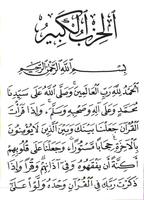 الحزب الكبير
بِسْمِ اللَّهِ الرَّحْمَٰنِ الرَّحِيمِ
الْحَمْدُ لِلَّهِ رَبِّ الْعَالَمِينَ وَصَلَّى اللَّهُ عَلَى سَيِّدِنَا
مُحَمَّدٍ وَعَلَى آلِهِ وَصَحْبِهِ وَسَلَّمَ وَإِذَا قَرَأْتَ
الْقُرْآنَ جَعَلْنَا بَيْنَكَ وَبَيْنَ الَّذِينَ لَا يُؤْمِنُونَ
بِالْآخِرَةِ حِجَابًا مَسْتُورًا وَجَعَلْنَا عَلَى قُلُوبِهِمْ
أَكِنَّةً أَنْ يَفْقَهُوهُ وَفِي آذَانِهِمْ وَقْرًا وَإِذَا
ذَكَرْتَ رَبَّكَ فِي الْقُرْآنِ وَحْدَهُ وَلَّوْا عَلَى